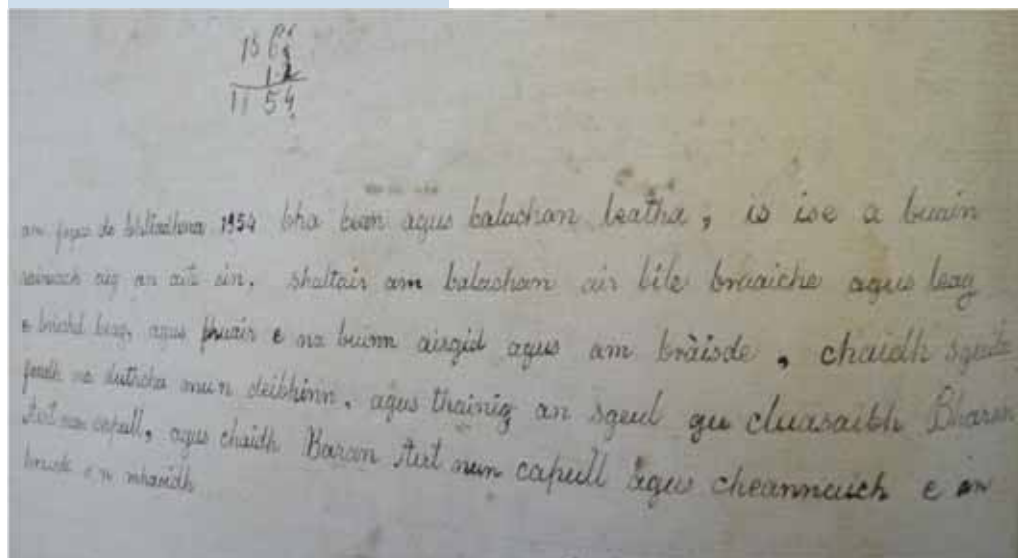 1154
am fogus do bhliadhna 1954 bha bean agus balachan leatha, is ise a buain
aig an aite sin, shaltair am balachan air bile bruaiche agus leag
e beag, agus fhuair e na buinn airgid agus am bràisde, chaidh
feadh na duthcha mun deibhinn, agus thainig an sgeul gu cluasaibh Bharon
Aut nan capull, agus chaidh Baron Aut nun capull agus cheannuich e an